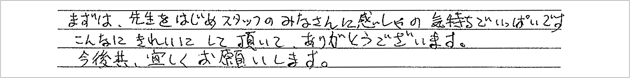 まずは、先生をはじめスタッフのみなさんに感しゃの気持ちでいっぱいです
こんなにきれいにして頂いて、ありがとうございます。
今後共、宜しくお願いします。